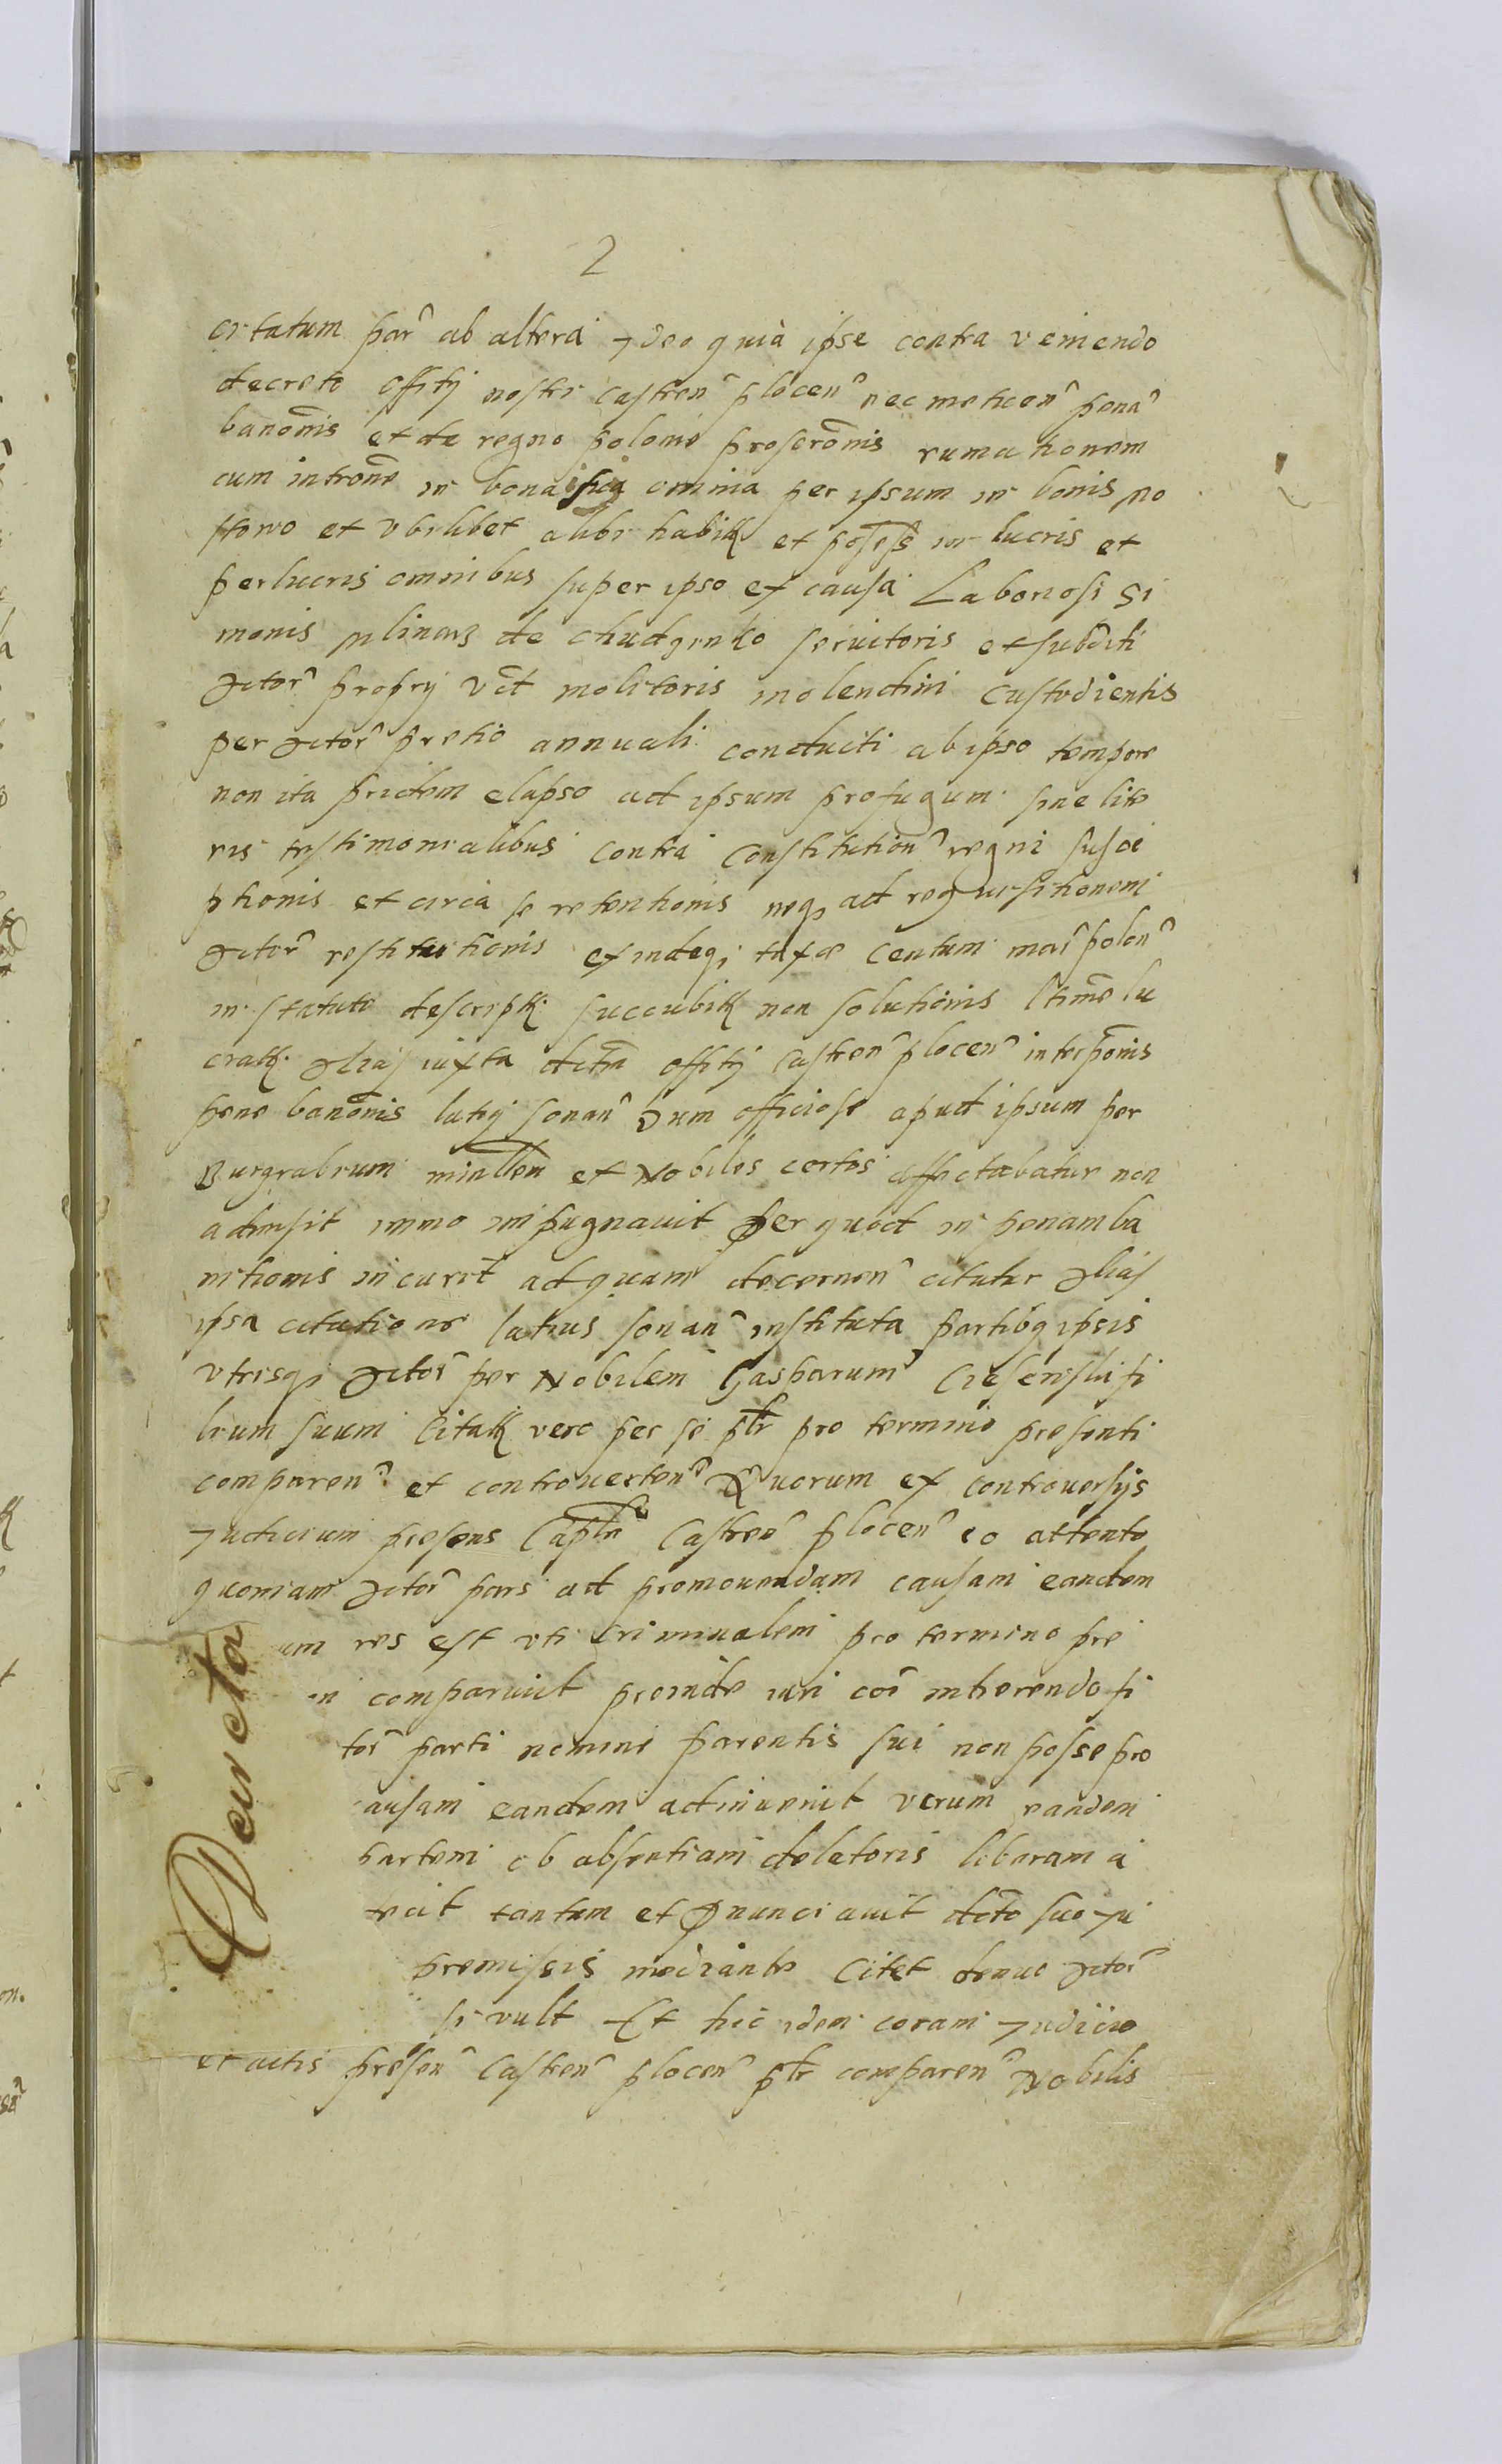 2
citatum par ab altera Ideo quia ipse contra veniendo
decreto offitij nostri castren plocen nec metuen pena
banonis et de regno polonie proscronis rumationem
cum introne in bona sua omnia per ipsum in bonis
et vbilibet alibi habitt et in lucris et
perlucris omnibus super ipso ex causa Laboriosi Si
monis de seruitoris et subditi
Actor proprij vct molitoris molendini custodientis
per Actor pretio annuali conducti ab ipso tempore
non ita pridem elapso ad ipsum profugum sine lite
ris testimonialibus contra Constitution regni susce
ptionis et circa se retentionis neq ad requisitionem
Actor restitutionis exindeq taxae centum mar polon
in statuto descript succubitt non solutionis ltime lu
cratt Alias iuxta dctm offitij Castren plocen interponis
pene banonis latij sonan dum officiose apud ipsum per
Burgrabium et Nobiles certos affectabatur non
admisit immo impugnauit per quod in penam ba
nitionis incurit ad quam decernen citatur Alias
ipsa citatione latius sonan instituta partibq ipsis
vtrisq Actor per Nobilem Gasparum fi
lium suum Citatt vero per se ptr pro termino presenti
comparen et controuerten Quorum ex controuersijs
Iudicium presens Capln Castren plocen eo attento
quoniam Actor pars ad promouendam causam eandem
um res est vti criminalem pro termino pre
comparuit proinde iuri coi inherendo fi
tor parti nomine parentis sui non posse pro
ausam eandem adinuenit verum eandem
partem ob absentiam delatoris liberam a
tantum et pnunciauit dcto suo
premissis mediante Citet denuo Actor
si vult Et hic idem coram Iudicio
et actis presen Castren plocen ptr comparen Nobilis